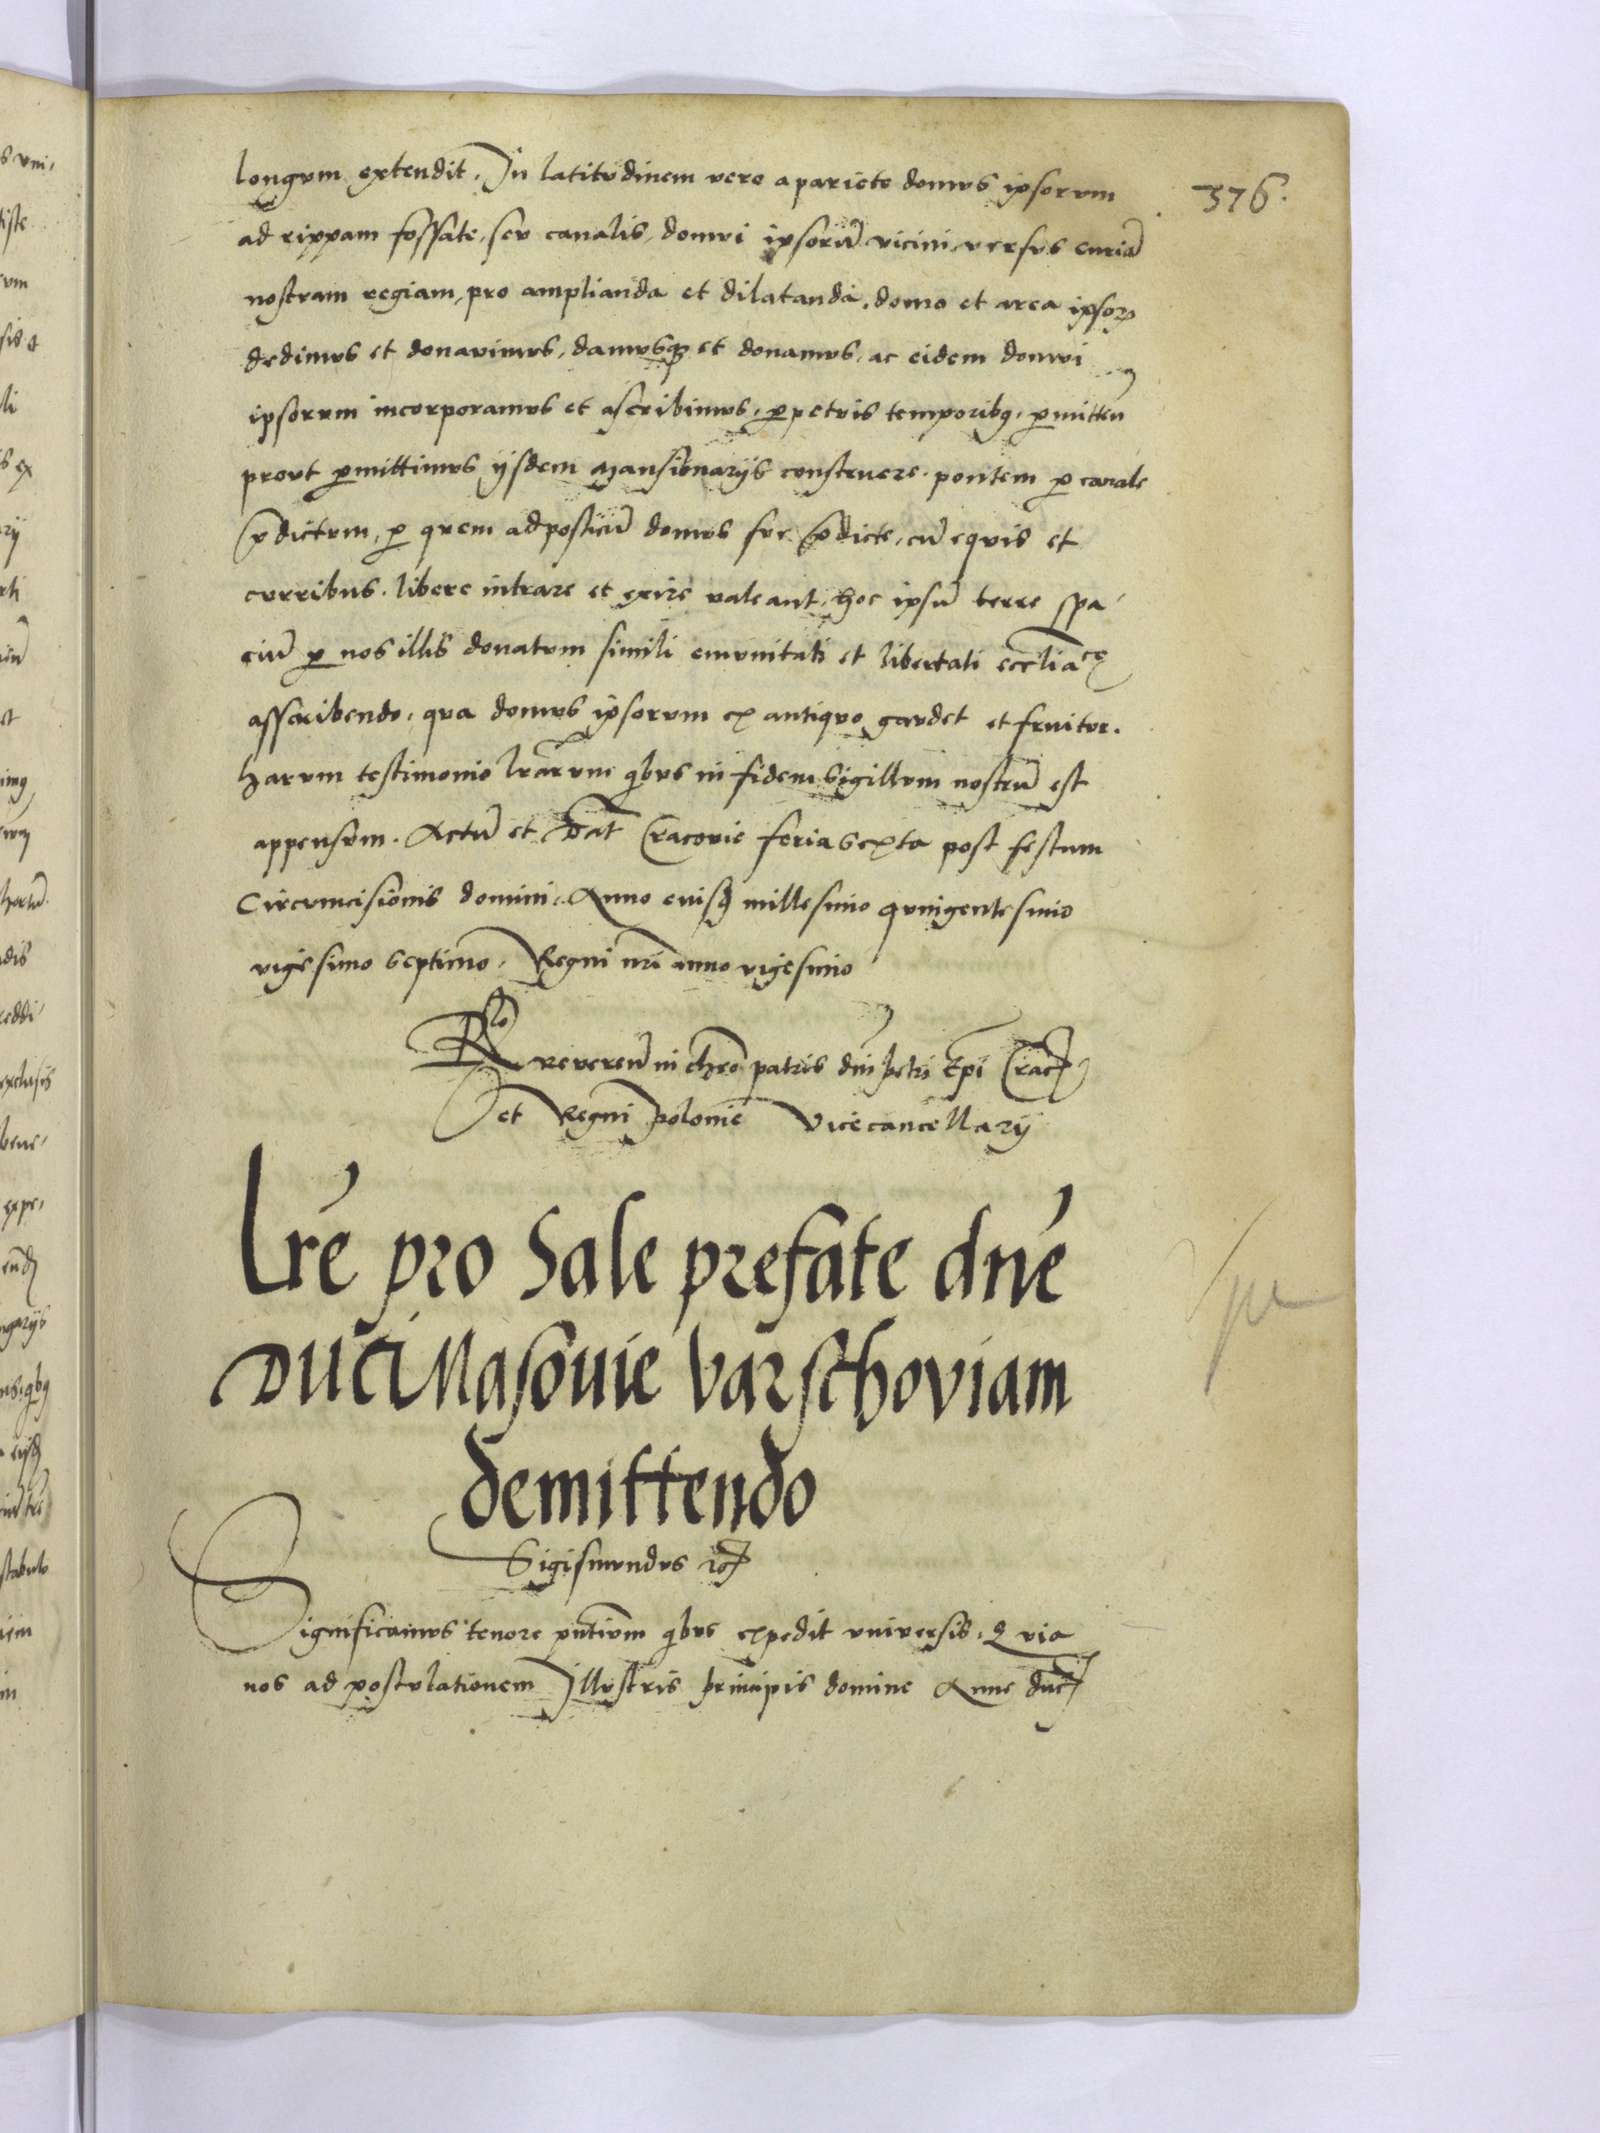 376.
longum extendit. In latitudinem vero a pariete domus ipsorum
ad rippam fossate, seu canalis, domui ipsorū vicini, versus curiā
nostram regiam, pro amplianda et dilatanda, domo et area ipsoꝝ
dedimus et donavimus, damusqꝫ et donamus, ac eidem domui
ipsorum incorporamus et ascribimus, ꝑpetuis temporibꝰ, ꝑmitteñ
prout ꝑmittimus ijsdem Mansionarijs construere pontem ꝑ canale
p̄dictum, ꝑ quem ad posticū domus sue p̄dicte, cū equis et
curribus libere intrare et exire valeant, hoc ipsū terre spa
ciū ꝑ nos illis donatum simili emunitati et libertati ecclīaceꝫ
asscribendo, qua domus ipsorum ex antiquo gaudet et fruitur.
Harum testimonio lrārum qbus in fidem Sigillum nostrū est
appensum. Actū et Dat Cracovie feria sexta post festum
Circumcisionis domini, Anno eiusꝫ millesimo quingentesimo
vigesimo septimo, Regni nrī anno vigesimo
Rlo reverēn in chro patris dnī petri Epi Crac
et Regni polonie Vicecancellarij
Lrē pro Sale prefate dnē
Duci Masovie Varschoviam
demittendo
Sigismundus
Significamus tenore pntium qbus expedit universis, Quia
nos ad postulationem Illustris principis domine Anne duc